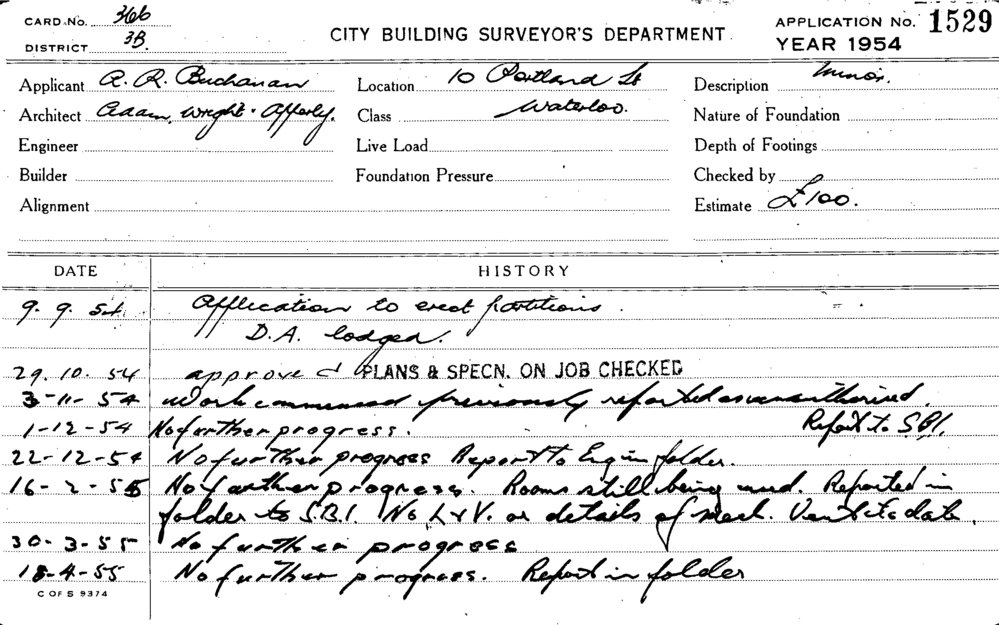 CARD No. 366
DISTRICT 3B.
CITY BUILDING SURVEYOR'S DEPARTMENT
APPLICATION No. 1529
YEAR 1954
Applicant A. R. Buchanan
Location 10 Portland St
Description Minor.
Architect Adam, Wright & Apperly.
Class Waterloo.
Nature of Foundation
Engineer
Live Load
Depth of Footings
Builder
Foundation Pressure
Checked by
Alignment
Estimate £100.
DATE HISTORY
9. 9. 54 Application to erect partitions.
D.A. lodged.
29. 10. 54 approved PLANS & SPECN. ON JOB CHECKED
3-11-54 Work commenced previously reported as unauthorised.
1-12-54 No further progress. Report to SBI.
22-12-54 No further progress Report to Eng in folder.
16-2-55 No further progress. Rooms still being used. Reported in
folder to S.B.I. No L & V. or details of Mech. Vent to date.
30-3-55 No further progress
18-4-55 No further progress. Report in folder
C OF S 9374